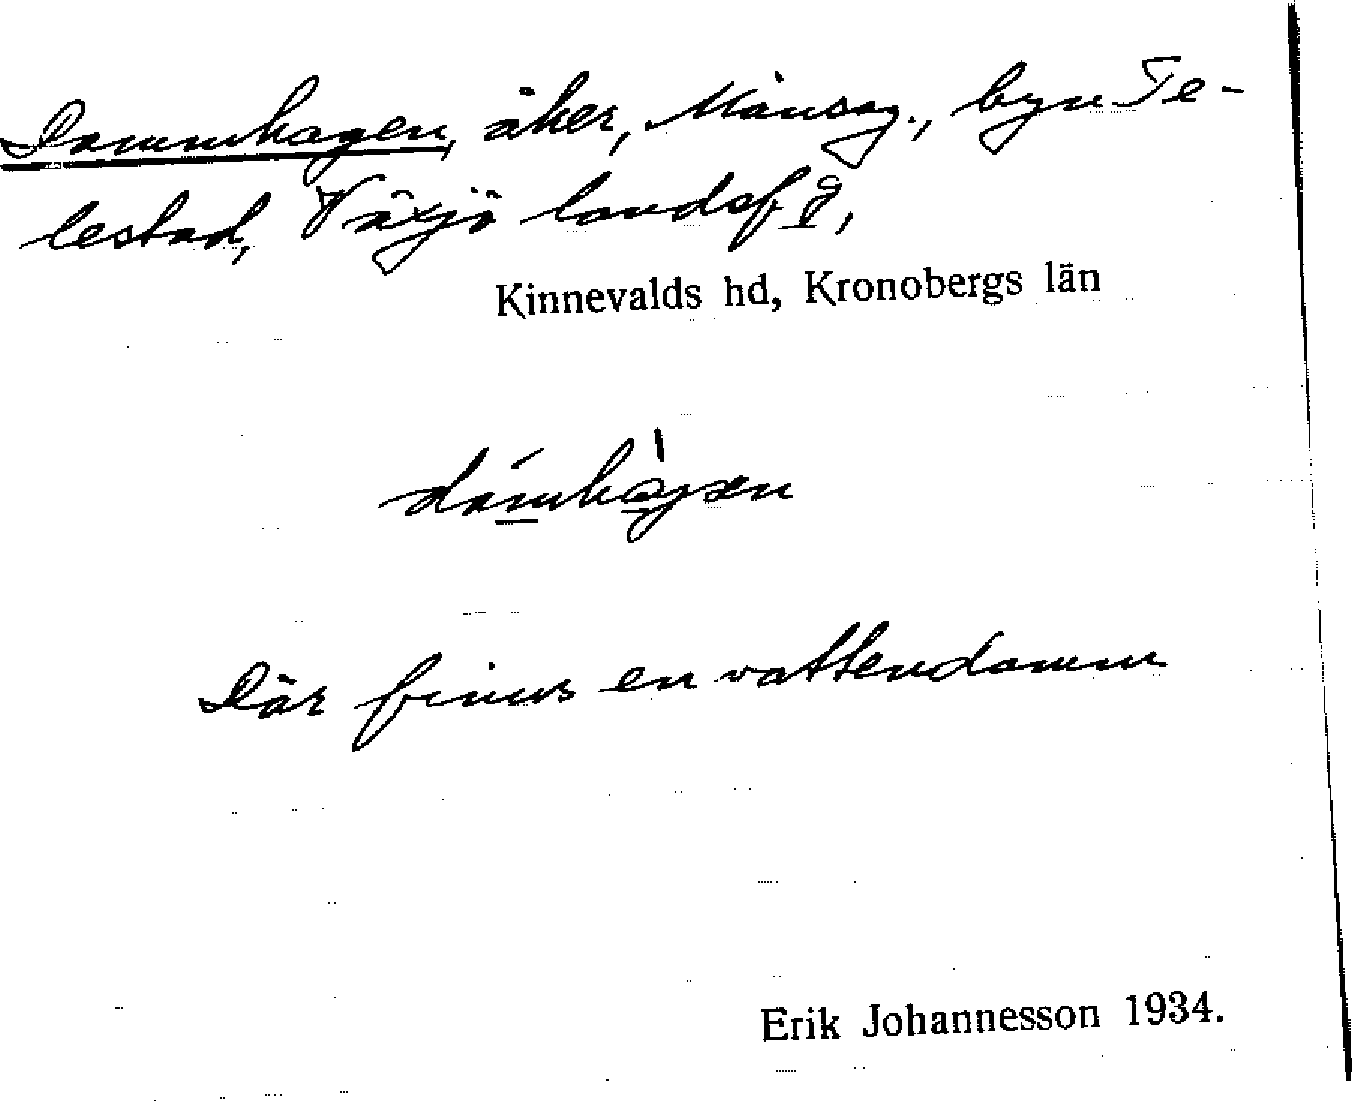 Dammhagen, åker, Månsag., byn Te-
lestad, Växjö landsf
Kinnevalds hd, Kronobergs län
Där finns en vattendamm
Erik Johannesson 1934.